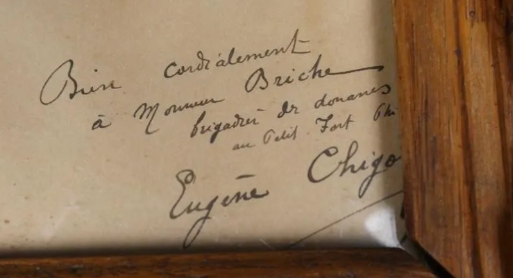 Bien cordialement
à Monsieur Briche
brigadier de douanes
au Petit Fort Phi
Eugène Chigo